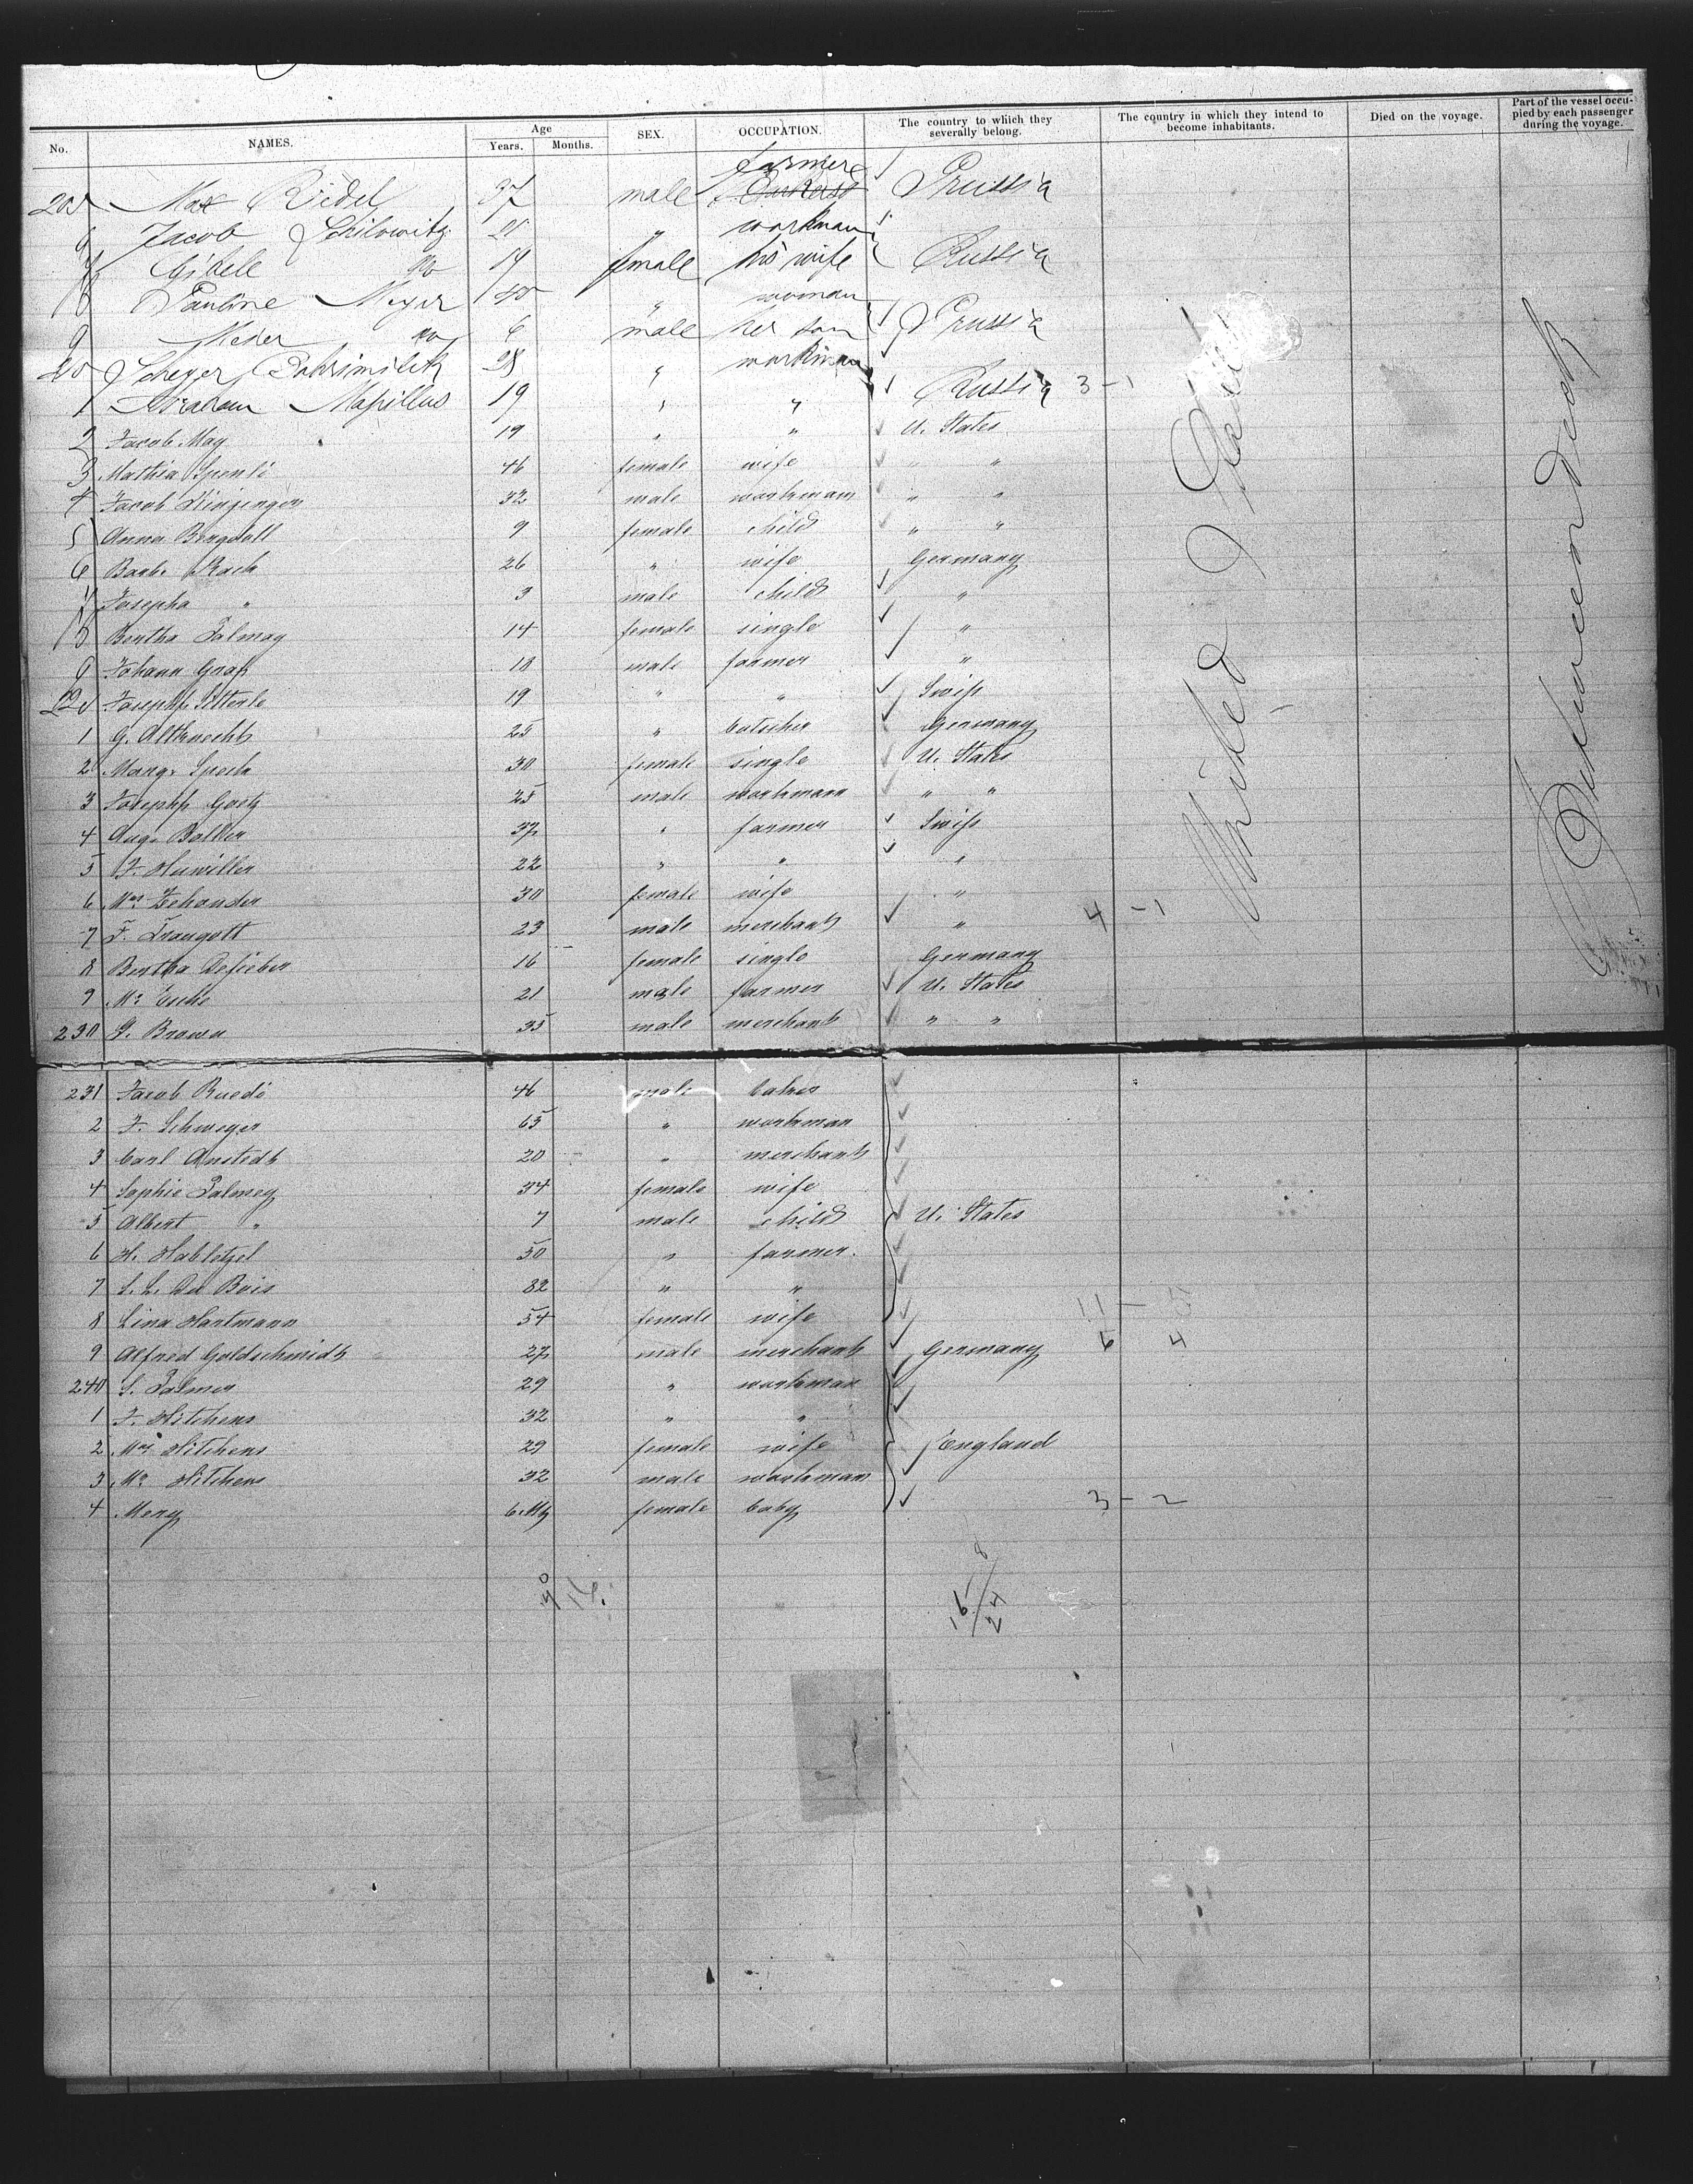 No. NAMES. Age Years. Months. SEX. OCCUPATION. The country to which they severally belong. The country in which they intend to become inhabitants. Died on the voyage. Part of the vessel occupied by each passenger during the voyage.
farmer
205 Max Riedel 37 male Prussia
6 Jacob 21 " workman
7 Gisele do 19 female his wife Russia
8 Pauline Meyer 40 " woman
9 Meier do 6 male her son Prussia
210 Scheyer 28 " workman
1 Abraham 19 " " Russia 3-1
2 Jacob May 19 " " U. States
3 Mathia 46 female wife " "
4 Jacob 32 male workman " "
5 Anna 9 female child " "
6 Barb. Rach 26 " wife Germany
7 Josepha " 3 male child "
8 Bertha Palmay 14 female single "
9 Johann Graf 18 male farmer "
220 Joseph Sitterle 19 " " Swiss
1 G. Altknecht 25 " butscher Germany
2 Marg. Specht 30 female single U. States
3 Joseph Goetz 25 male workmann " "
4 Aug. Baller 37 " farmer Swiss
5 F. Huwiller 22 " " "
6 Mrs Zehander 30 female wife "
7 F. Traugott 23 male merchant " 4-1
8 Bertha 16 female single Germany
9 Mr 21 male farmer U. States
230 G. Brown 35 male merchant " "
United States
Between Deck
231 Jacob Ruedi 46 male baker
2 F. Schweyer 65 " workman
3 Carl Anstedt 20 " merchant
4 Sophie Palmey 34 female wife
5 Albert " 7 male child U. States
6 H. Habletzel 50 " farmer.
7 S. L. Du Bois 82 " "
8 Lina Hartmann 54 female wife 11 -
9 Alfred Goldschmidt 27 male merchant Germany 6 4
240 S. Palmer 29 " workman
1 F. Hitchens 32 " "
2 Mrs Hitchens 29 female wife England
3 Mr Hitchens 32 male workman
4 Mery 6. M female baby 3-2
40
16/24 8